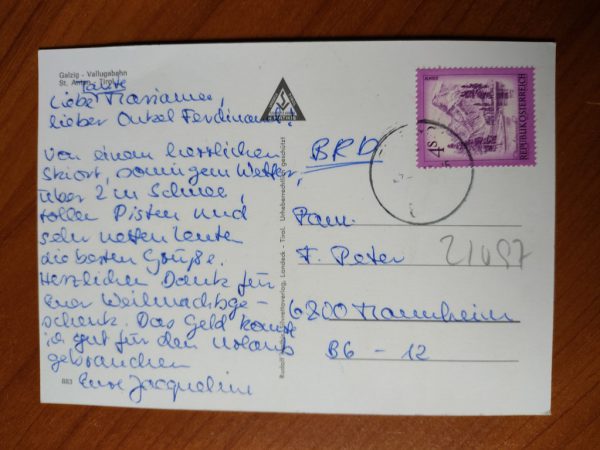 Galzig - Vallugabahn
St. Anton - Tirol
Tante
Liebe Marianne,
lieber Onkel Ferdinand!
Von einem herrlichen
Skiort, sonnigem Wetter,
über 2 m Schnee,
tollen Pisten und
sehr netten Leuten
die besten Grüße.
Herzlichen Dank für
Euer Weihnachtsge-
schenk. Das Geld konnte
ich gut für den Urlaub
gebrauchen
Eure Jacqueline
883
Landeck - Tirol. Urheberrechtlich geschützt
4S
REPUBLIK ÖSTERREICH
BRD
Fam.
F. Peter
6800 Mannheim
B6 - 12